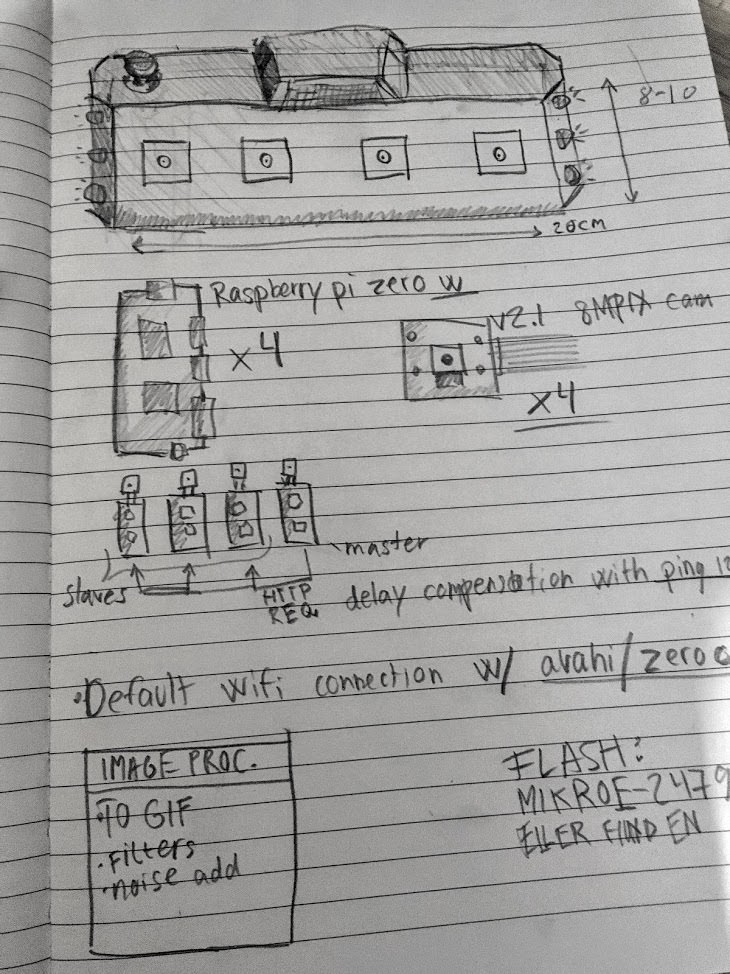 8-10
20CM
Raspberry pi zero w
x4
V2.1 8MPIX cam
x4
master
slaves
HTTP
REQ.
delay compensation with ping
• Default wifi connection w/ avahi/zero
IMAGE PROC.
• TO GIF
• Filters
• noise add
FLASH:
MIKROE-2479
ELLER FIND EN